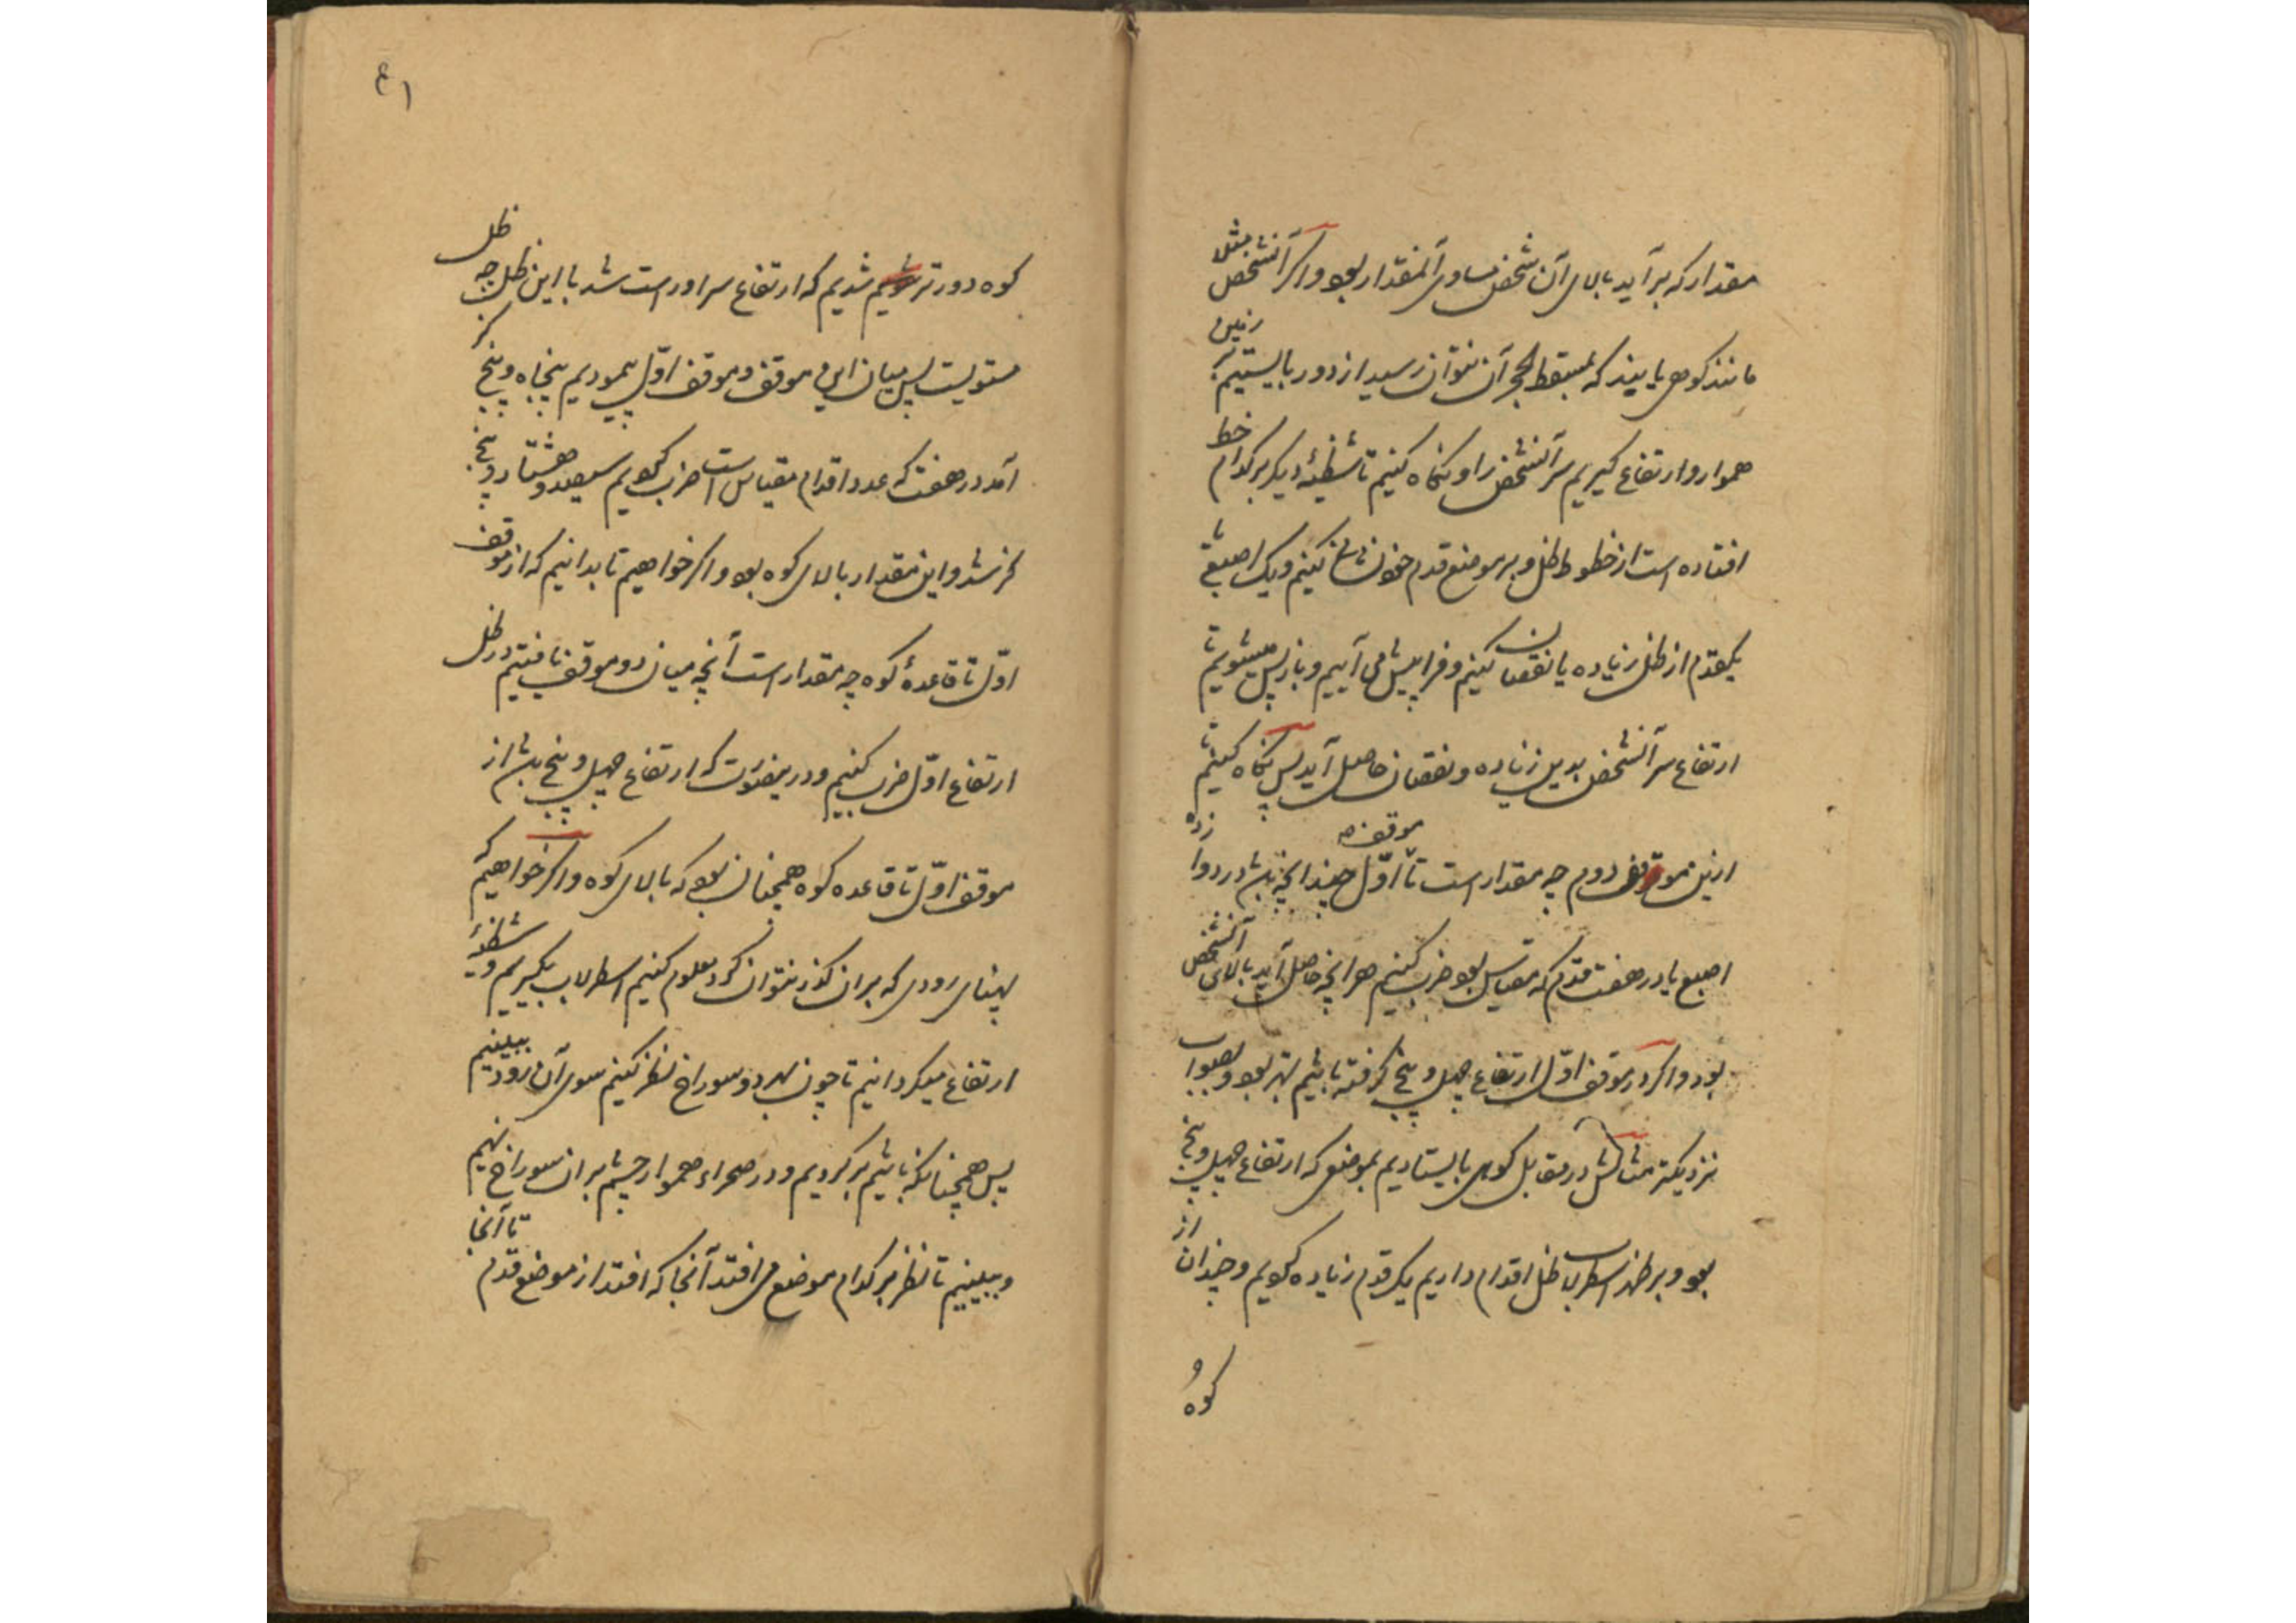 مقدار که برآید بالای آن شخص مساوی آنمقدار بود و اگر آنشخص مثل
مانند کوهی یا بیند که بمسقط الحجر آن نتوان رسید از دور بایستیم بر زمین
هموار و ارتفاع گیریم سر آنشخص را و نگاه کنیم تا شظیهٔ دیگر بر کدام خط
افتاده است از خطوط ظل و بر موضع قدم خود نشان کنیم و یک اصبع یا
یکقدم از ظل زیاده یا نقصان کنیم و فراپیش می آییم و باز پس میشویم تا
ارتفاع سر آنشخص بدین زیاده و نقصان حاصل آید پس نگاه کنیم تا
ازین موقف دوم چه مقدار است تا موقف اول چندانچه باشد در دوازده
اصبع یا در هفت قدم که مقیاس بود ضرب کنیم هر آنچه حاصل آید بالای آنشخص
بود و اگر در موقف اول ارتفاع چهل و پنج گرفته باشیم بهتر بود و بصواب
نزدیکتر مثالش در مقابل کوهی بایستادیم بموضعی که ارتفاع چهل و پنج
بود و بر ظهر اسطرلاب ظل اقدام داریم یک قدم زیاده کردیم و چندان از
کوه
٤١
کوه دورتر شدیم که ارتفاع سر او راست شد با این ظل چه ظل
مستویست پس میان این موقف و موقف اول پیمودیم پنجاه و پنج گز
آمد در هفت که عدد اقدام مقیاس است ضرب کردیم سیصد و هشتاد و پنج
گز شد و این مقدار بالای کوه بود و اگر خواهیم تا بدانیم که از موقف
اول تا قاعدهٔ کوه چه مقدار است آنچه میان دو موقف یافتیم در ظل
ارتفاع اول ضرب کنیم و در ینصورت که ارتفاع چهل و پنج باشد از
موقف اول تا قاعده کوه همچنان بود که بالای کوه و اگر خواهیم که
پهنای رودی که بران گذر نتوان کرد معلوم کنیم اسطرلاب بگیریم و شظیهٔ
ارتفاع میگردانیم تا چون بهر دو سوراخ نظر کنیم سوی آن رود ببینیم
پس همچنانکه باشیم برگردیم و در صحراء هموار چشم بران سوراخ نهیم
و ببینیم تا نظر بر کدام موضع می افتد آنجا که افتد از موضع قدم تا آنجا